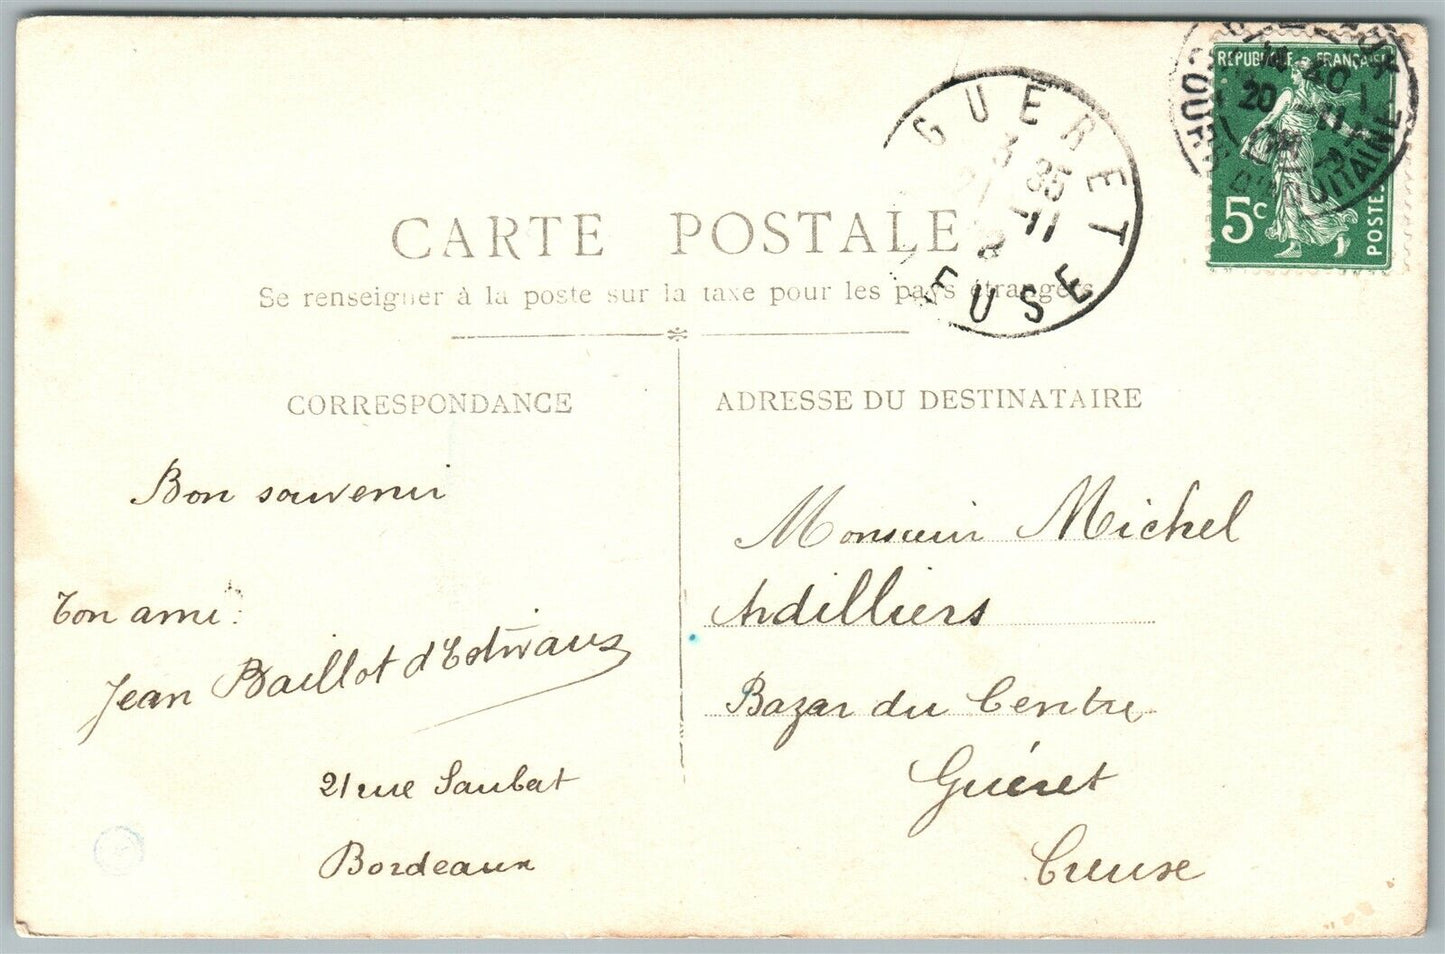 CARTE POSTALE
Se renseigner à la poste sur la taxe pour les pays étrangers
CORRESPONDANCE
Bon souvenir
Ton ami:
Jean Baillot d'Estivaux
21 rue Saubat
Bordeaux
ADRESSE DU DESTINATAIRE
Monsieur Michel
Andilliers
Bazar du Centre
Guéret
Creuse
GUERET
3 35
21 -11
EUSE
REPUBLIQUE FRANÇAISE
5c
POSTES
40
20 -11
COURS D'AQUITAINE